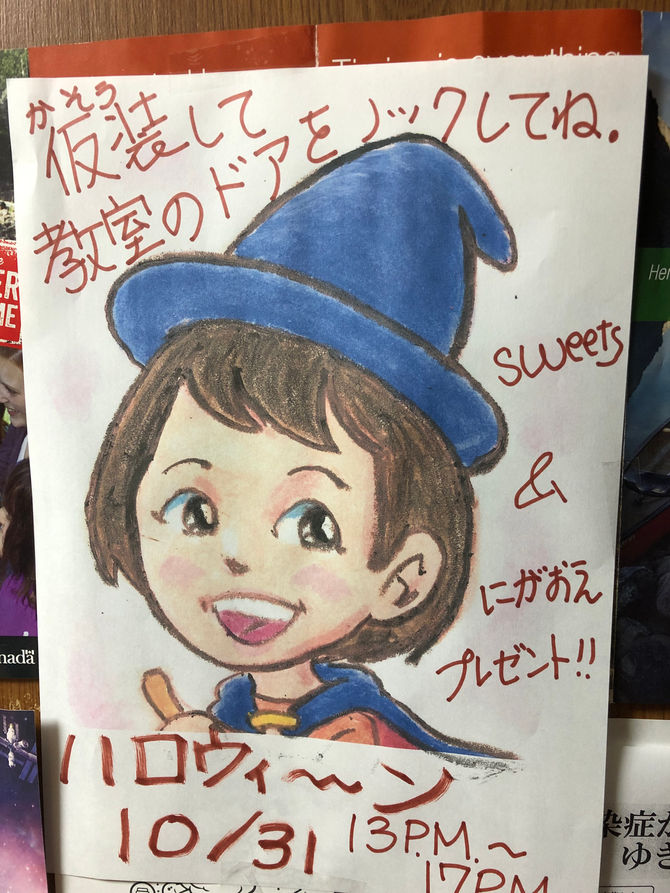 かそう
仮装して
教室のドアをノックしてね.
sweets
&
にがおえ
プレゼント!!
ハロウィ〜ン
10/31 13P.M.〜
17PM
everything
Her
ER
ME
nada
染症か
ゆき